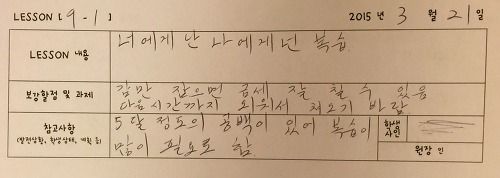 LESSON [9-1] 2015 년 3 월 21 일
LESSON 내용
너에게 난 나에게 넌 복습.
보강할점 및 과제
감만 잡으면 금세 잘 칠 수 있음
다음시간까지 외워서 쳐오기 바람
참고사항
(발전상황, 학생상태, 계획 등)
5달 정도의 공백이 있어 복습이
많이 필요로 함.
학생
사인
원장 인